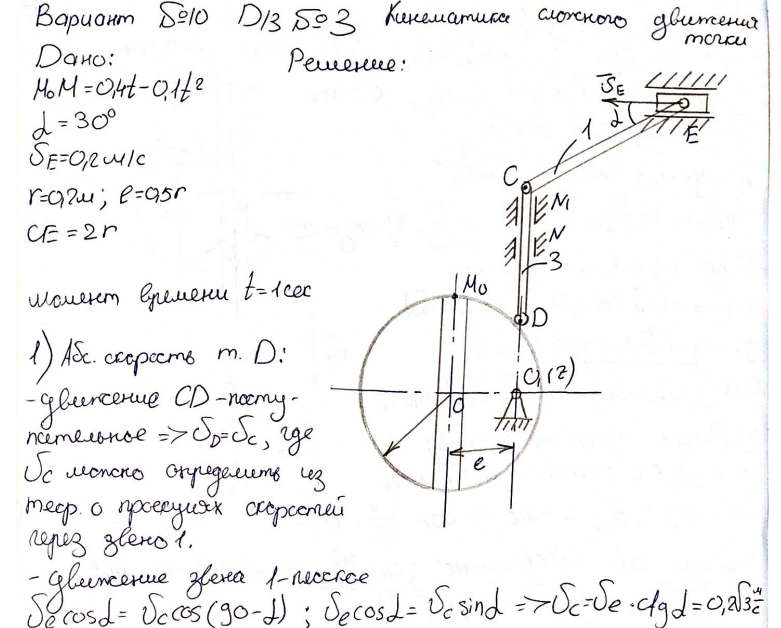 Вариант №10 D/З №3 Кинематика сложного движения
точки
Дано:
Решение:
M₀M = 0,4t - 0,1t²
α = 30°
V̄E
α
1
E
VE = 0,2 м/с
r = 0,2м; e = 0,5r
C
CE = 2r
N₁
N
3
момент времени t = 1сек
M₀
D
1) Абс. скорость т. D:
O₁(z)
- движение CD - посту-
O
пательное => VD = VC, где
e
VC можно определить из
теор. о проекциях скоростей
через звено 1.
- движение звена 1 - плоское
Ve cosα = Vc cos(90-α) ; Ve cosα = Vc sinα => Vc = Ve · ctgα = 0,2√3 м/с